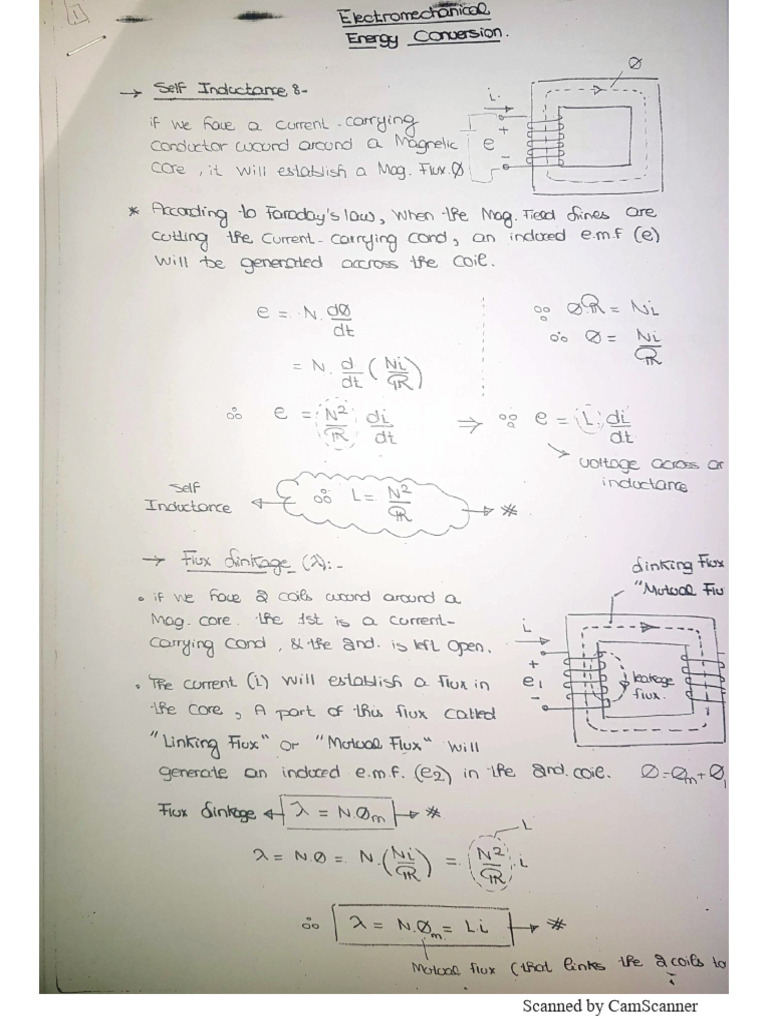 1
Electromechanical
Energy Conversion.
→ Self Inductance :-
if we have a current-carrying
conductor wound around a Magnetic
core, it will establish a Mag. Flux Ø
i
+
e
-
Ø
* According to Faraday's law, when the Mag. Field lines are
cutting the current-carrying cond, an induced e.m.f (e)
will be generated accross the coil.
e = N. dØ/dt
∵ Ø.ℛ = Ni
∴ Ø = Ni/ℛ
= N. d/dt (Ni/ℛ)
∴ e = N²/ℛ di/dt ⇒ ∵ e = L. di/dt
voltage across an
inductance
Self
Inductance
∴ L = N²/ℛ → *
→ Flux linkage (λ):-
• if we have 2 coils wound around a
Mag. core. the 1st is a current-
carrying cond, & the 2nd. is left open.
• The current (i) will establish a flux in
the core, A part of this flux called
"Linking Flux" or "Mutual Flux" will
generate an induced e.m.f. (e2) in the 2nd. coil.
Linking Flux
"Mutual Flu
i
+
e1
-
leakage
flux.
Ø=Øm+Øl
Flux linkage ← λ = N.Øm → *
λ = N.Ø = N.(Ni/ℛ) = N²/ℛ .i
L
∴ λ = N.Øm = L.i → *
Mutual flux (that links the 2 coils to
Scanned by CamScanner